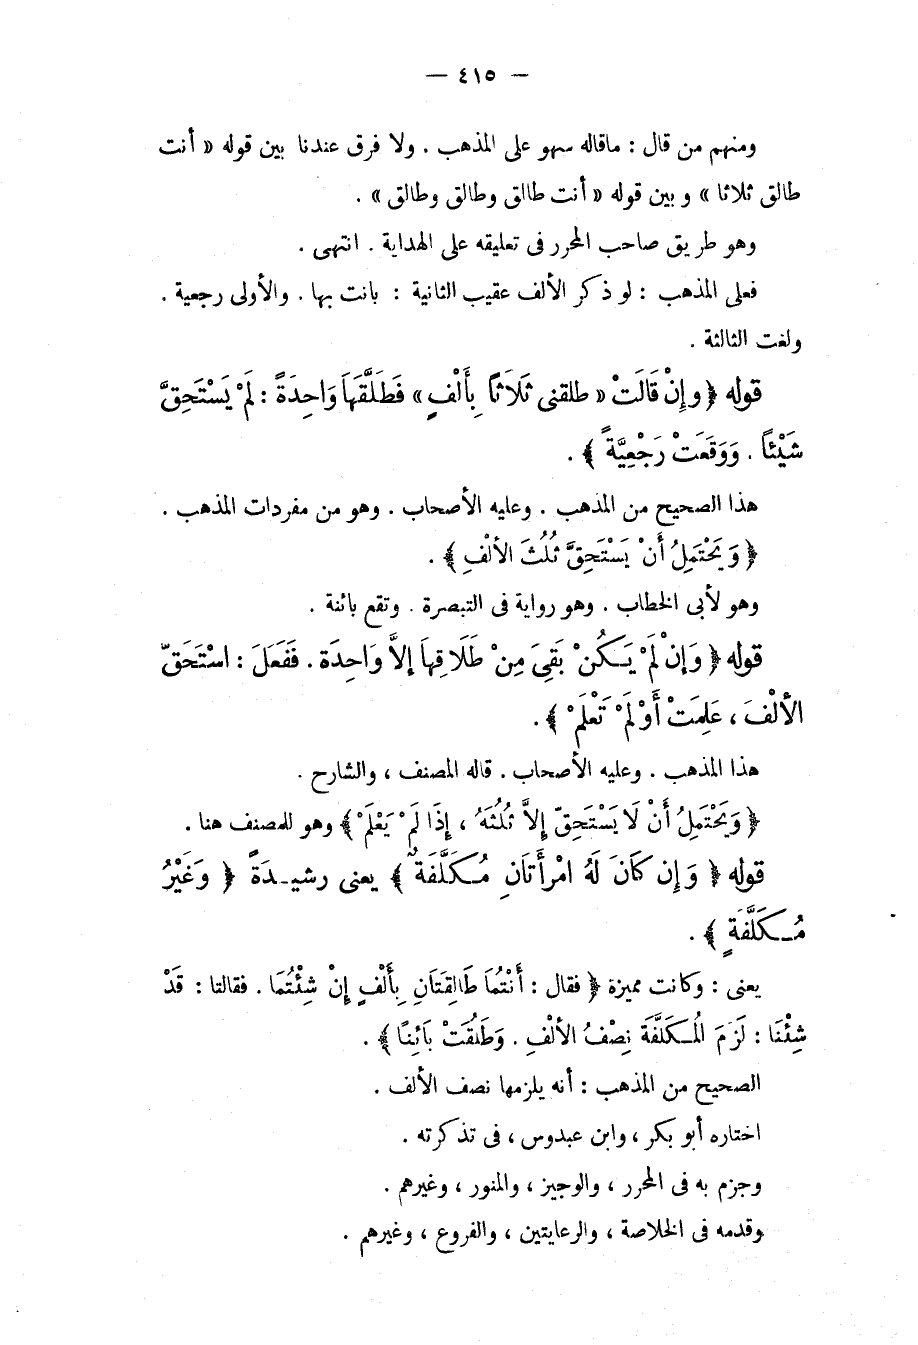 — ٤١٥ —
ومنهم من قال : ماقاله سهو على المذهب . ولا فرق عندنا بين قوله « أنت
طالق ثلاثا » و بين قوله « أنت طالق وطالق وطالق » .
وهو طريق صاحب المحرر فى تعليقه على الهداية . انتهى .
فعلى المذهب : لو ذكر الألف عقيب الثانية : بانت بها . والأولى رجعية .
ولغت الثالثة .
قوله ﴿ وإنْ قَالَتْ « طلقنى ثَلَاثاً بِأَلْفٍ » فَطَلَّقَهَا وَاحِدَةً : لَمْ يَسْتَحِقَّ
شَيْئاً . وَوَقَعَتْ رَجْعِيَّةً ﴾ .
هذا الصحيح من المذهب . وعليه الأصحاب . وهو من مفردات المذهب .
﴿ وَيَحْتَمِلُ أَنْ يَسْتَحِقَّ ثُلُثَ الألْفِ ﴾ .
وهو لأبى الخطاب . وهو رواية فى التبصرة . وتقع بائنة .
قوله ﴿ وَإنْ لَمْ يَكُنْ بَقِىَ مِنْ طَلَاقِهَا إلاَّ وَاحِدَة . فَفَعَلَ : اسْتَحَقّ
الألْفَ ، عَلِمَتْ أَوْ لَمْ تَعْلَمْ ﴾ .
هذا المذهب . وعليه الأصحاب . قاله المصنف ، والشارح .
﴿ وَيَحْتَمِلُ أَنْ لَا يَسْتَحِقّ إلاَّ ثُلُثَهُ ، إذَا لَمْ يَعْلَمْ ﴾ وهو للمصنف هنا .
قوله ﴿ وَإن كَانَ لَهُ امْرأَتَانِ مُكَلَّفَةٌ ﴾ يعنى رشيـدَةً ﴿ وَغَيْرُ
مُكَلَّفَةٍ ﴾ .
يعنى : وكانت مميزة ﴿ فقال : أَنْتُمَا طَالِقَتَانِ بِأَلْفٍ إنْ شِئْتُمَا . فقالتا : قَدْ
شِئْنَا : لَزِمَ الْمُكَلَّفَةَ نِصْفُ الألْفِ . وَطَلُقَتْ بَائِنًا ﴾ .
الصحيح من المذهب : أنه يلزمها نصف الألف .
اختاره أبو بكر ، وابن عبدوس ، فى تذكرته .
وجزم به فى المحرر ، والوجيز ، والمنور ، وغيرهم .
وقدمه فى الخلاصة ، والرعايتين ، والفروع ، وغيرهم .